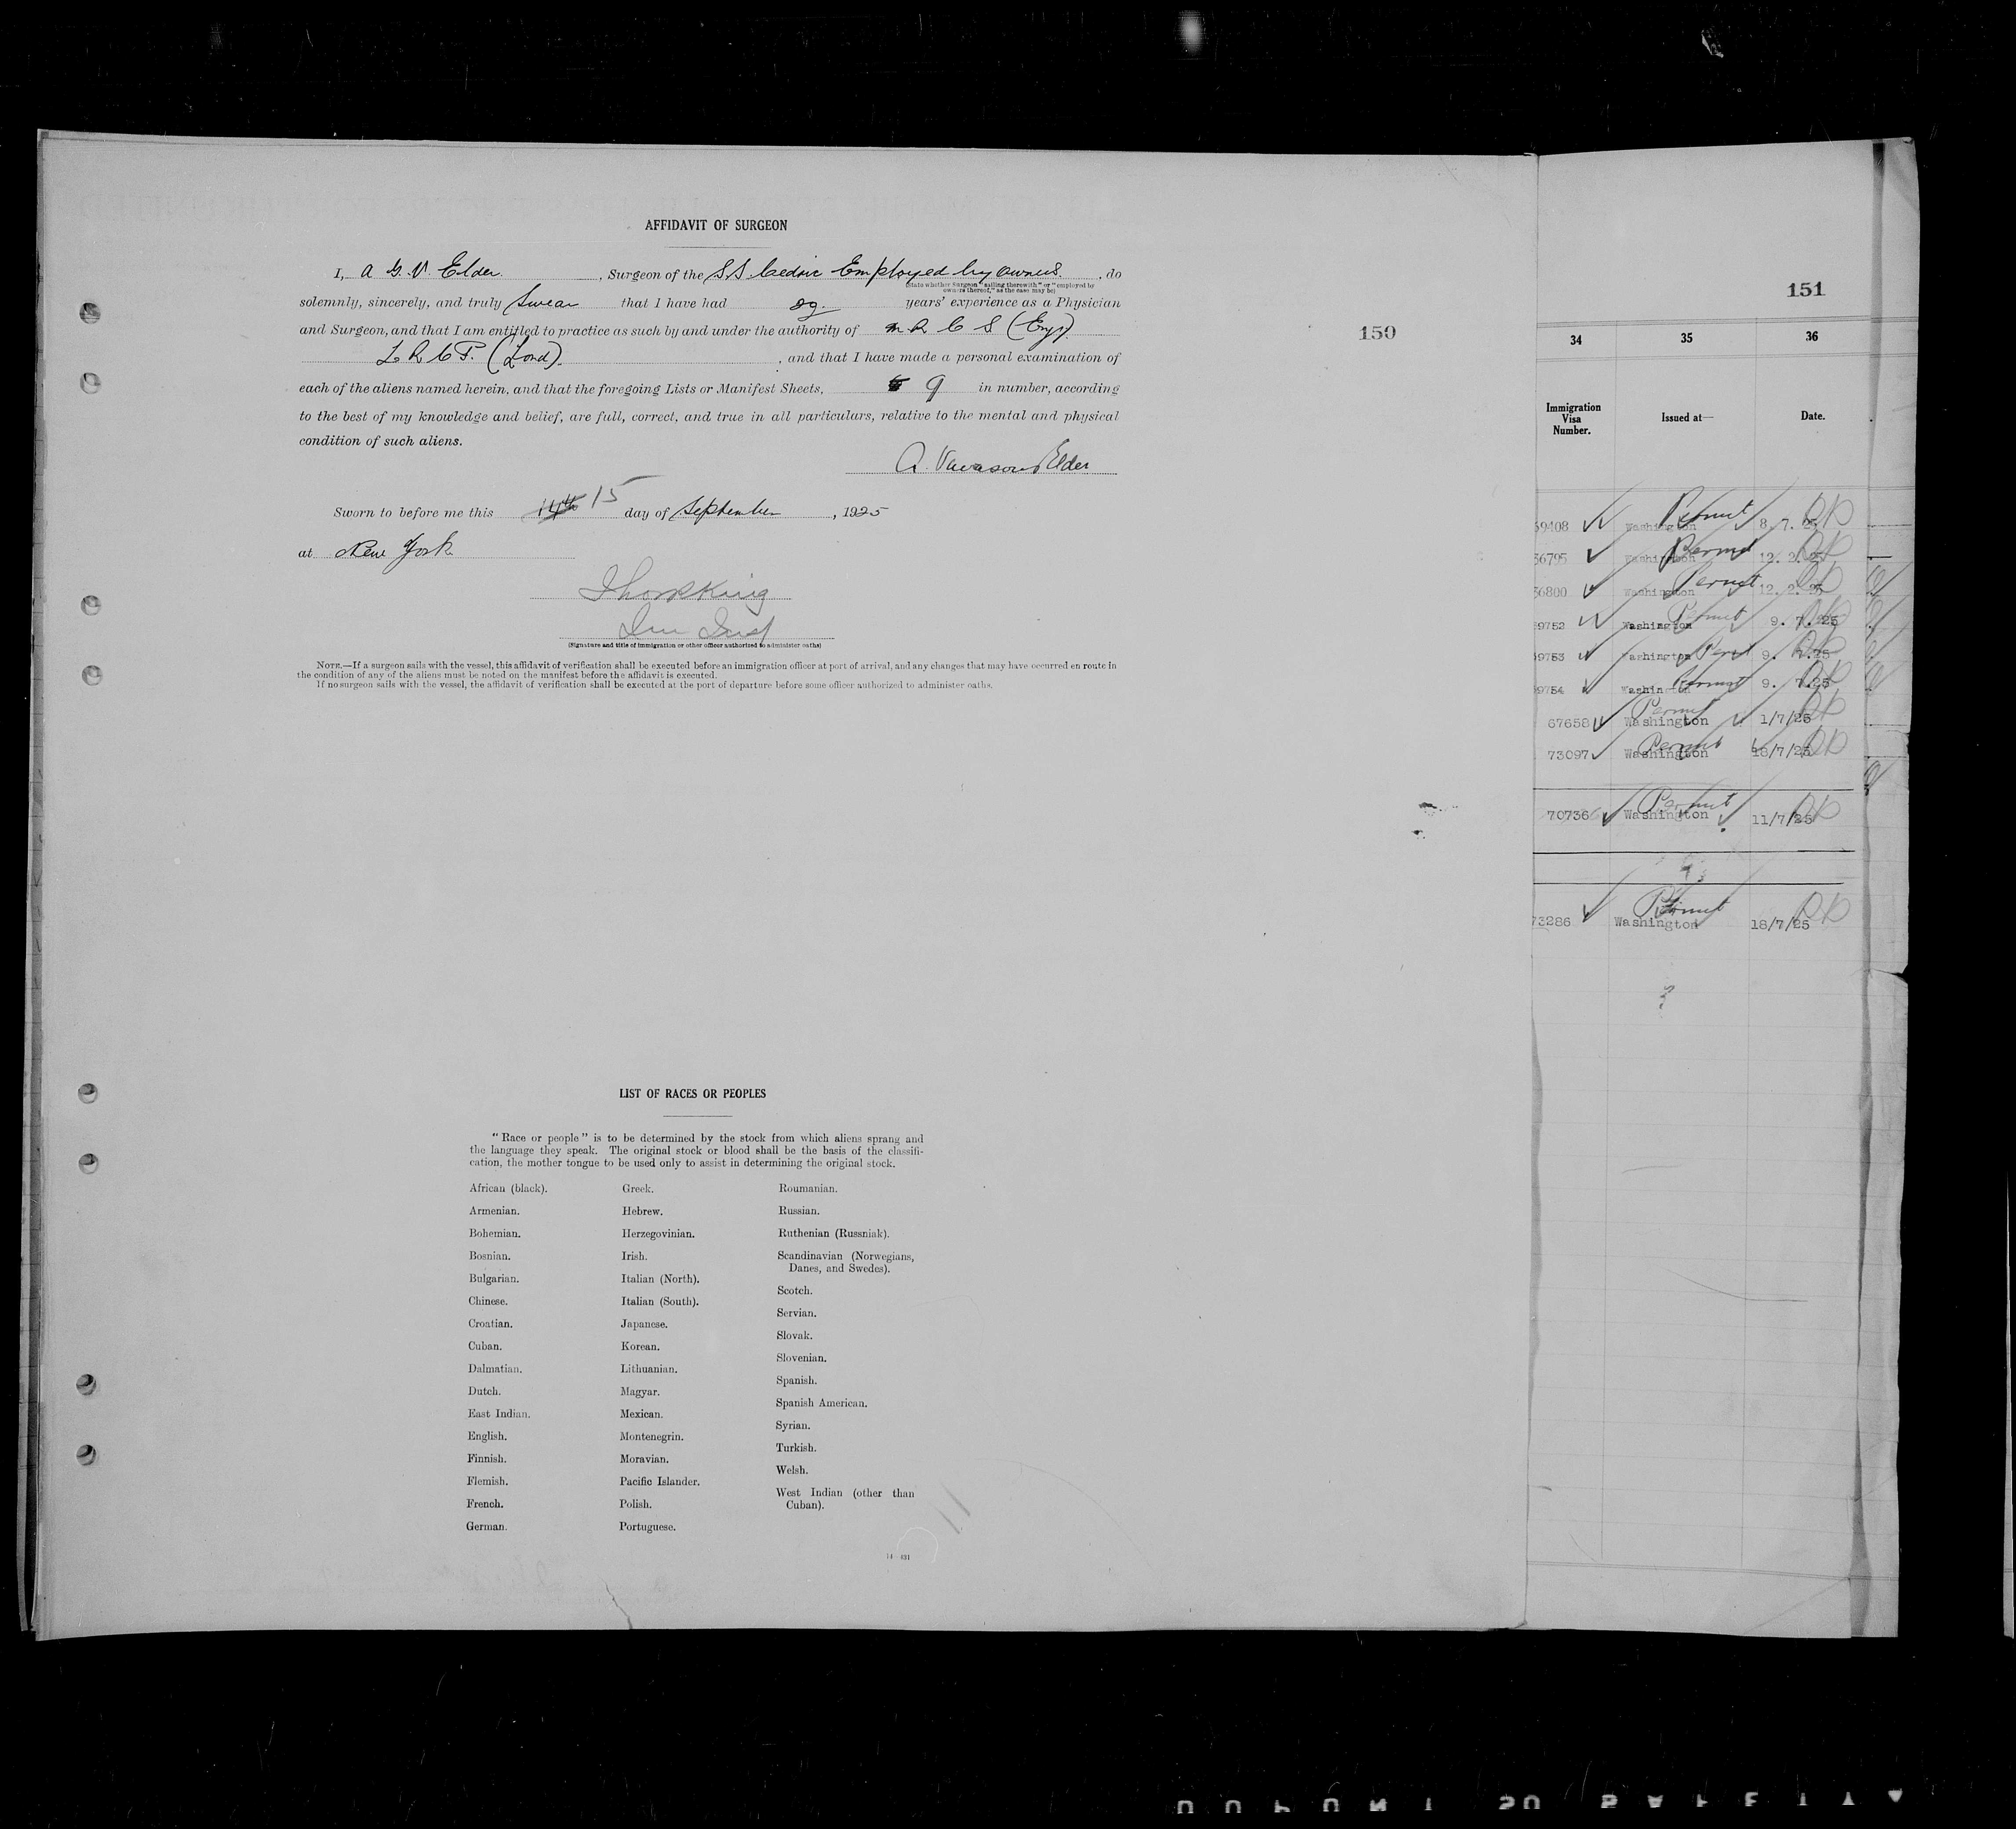 AFFIDAVIT OF SURGEON
I, A G. V. Elder, Surgeon of the S.S. Cedric Employed by owners, do
(State whether Surgeon "sailing therewith" or "employed by
owners thereof," as the case may be)
solemnly, sincerely, and truly swear that I have had years' experience as a Physician
and Surgeon, and that I am entitled to practice as such by and under the authority of M R C S (Eng).
L R C P. (Lond). , and that I have made a personal examination of
each of the aliens named herein, and that the foregoing Lists or Manifest Sheets, 9 in number, according
to the best of my knowledge and belief, are full, correct, and true in all particulars, relative to the mental and physical
condition of such aliens.
A. Vavasour Elder
Sworn to before me this 14th 15 day of September, 1925
at New York
(Signature and title of immigration or other officer authorized to administer oaths)
NOTE.—If a surgeon sails with the vessel, this affidavit of verification shall be executed before an immigration officer at port of arrival, and any changes that may have occurred en route in
the condition of any of the aliens must be noted on the manifest before the affidavit is executed.
If no surgeon sails with the vessel, the affidavit of verification shall be executed at the port of departure before some officer authorized to administer oaths.
150
LIST OF RACES OR PEOPLES
"Race or people" is to be determined by the stock from which aliens sprang and
the language they speak. The original stock or blood shall be the basis of the classifi-
cation, the mother tongue to be used only to assist in determining the original stock.
African (black).
Armenian.
Bohemian.
Bosnian.
Bulgarian.
Chinese.
Croatian.
Cuban.
Dalmatian.
Dutch.
East Indian.
English.
Finnish.
Flemish.
French.
German.
Greek.
Hebrew.
Herzegovinian.
Irish.
Italian (North).
Italian (South).
Japanese.
Korean.
Lithuanian.
Magyar.
Mexican.
Montenegrin.
Moravian.
Pacific Islander.
Polish.
Portuguese.
Roumanian.
Russian.
Ruthenian (Russniak).
Scandinavian (Norwegians,
Danes, and Swedes).
Scotch.
Servian.
Slovak.
Slovenian.
Spanish.
Spanish American.
Syrian.
Turkish.
Welsh.
West Indian (other than
Cuban).
14—431
151
34 35 36
Immigration
Visa
Number.
Issued at—
Date.
69408 Washington Permit 8. 7. 25
56795 Washington Permit 12. 2. 25
56800 Washington Permit 12. 2. 25
69752 Washington Permit 9. 7. 25
69753 Washington 9. 7.25
69754 Washington Permit 9. 7.25
67658 Washington Permit 1/7/25
73097 Washington Permit 18/7/25
70736 Washington Permit 11/7/25
73286 Washington Permit 18/7/25